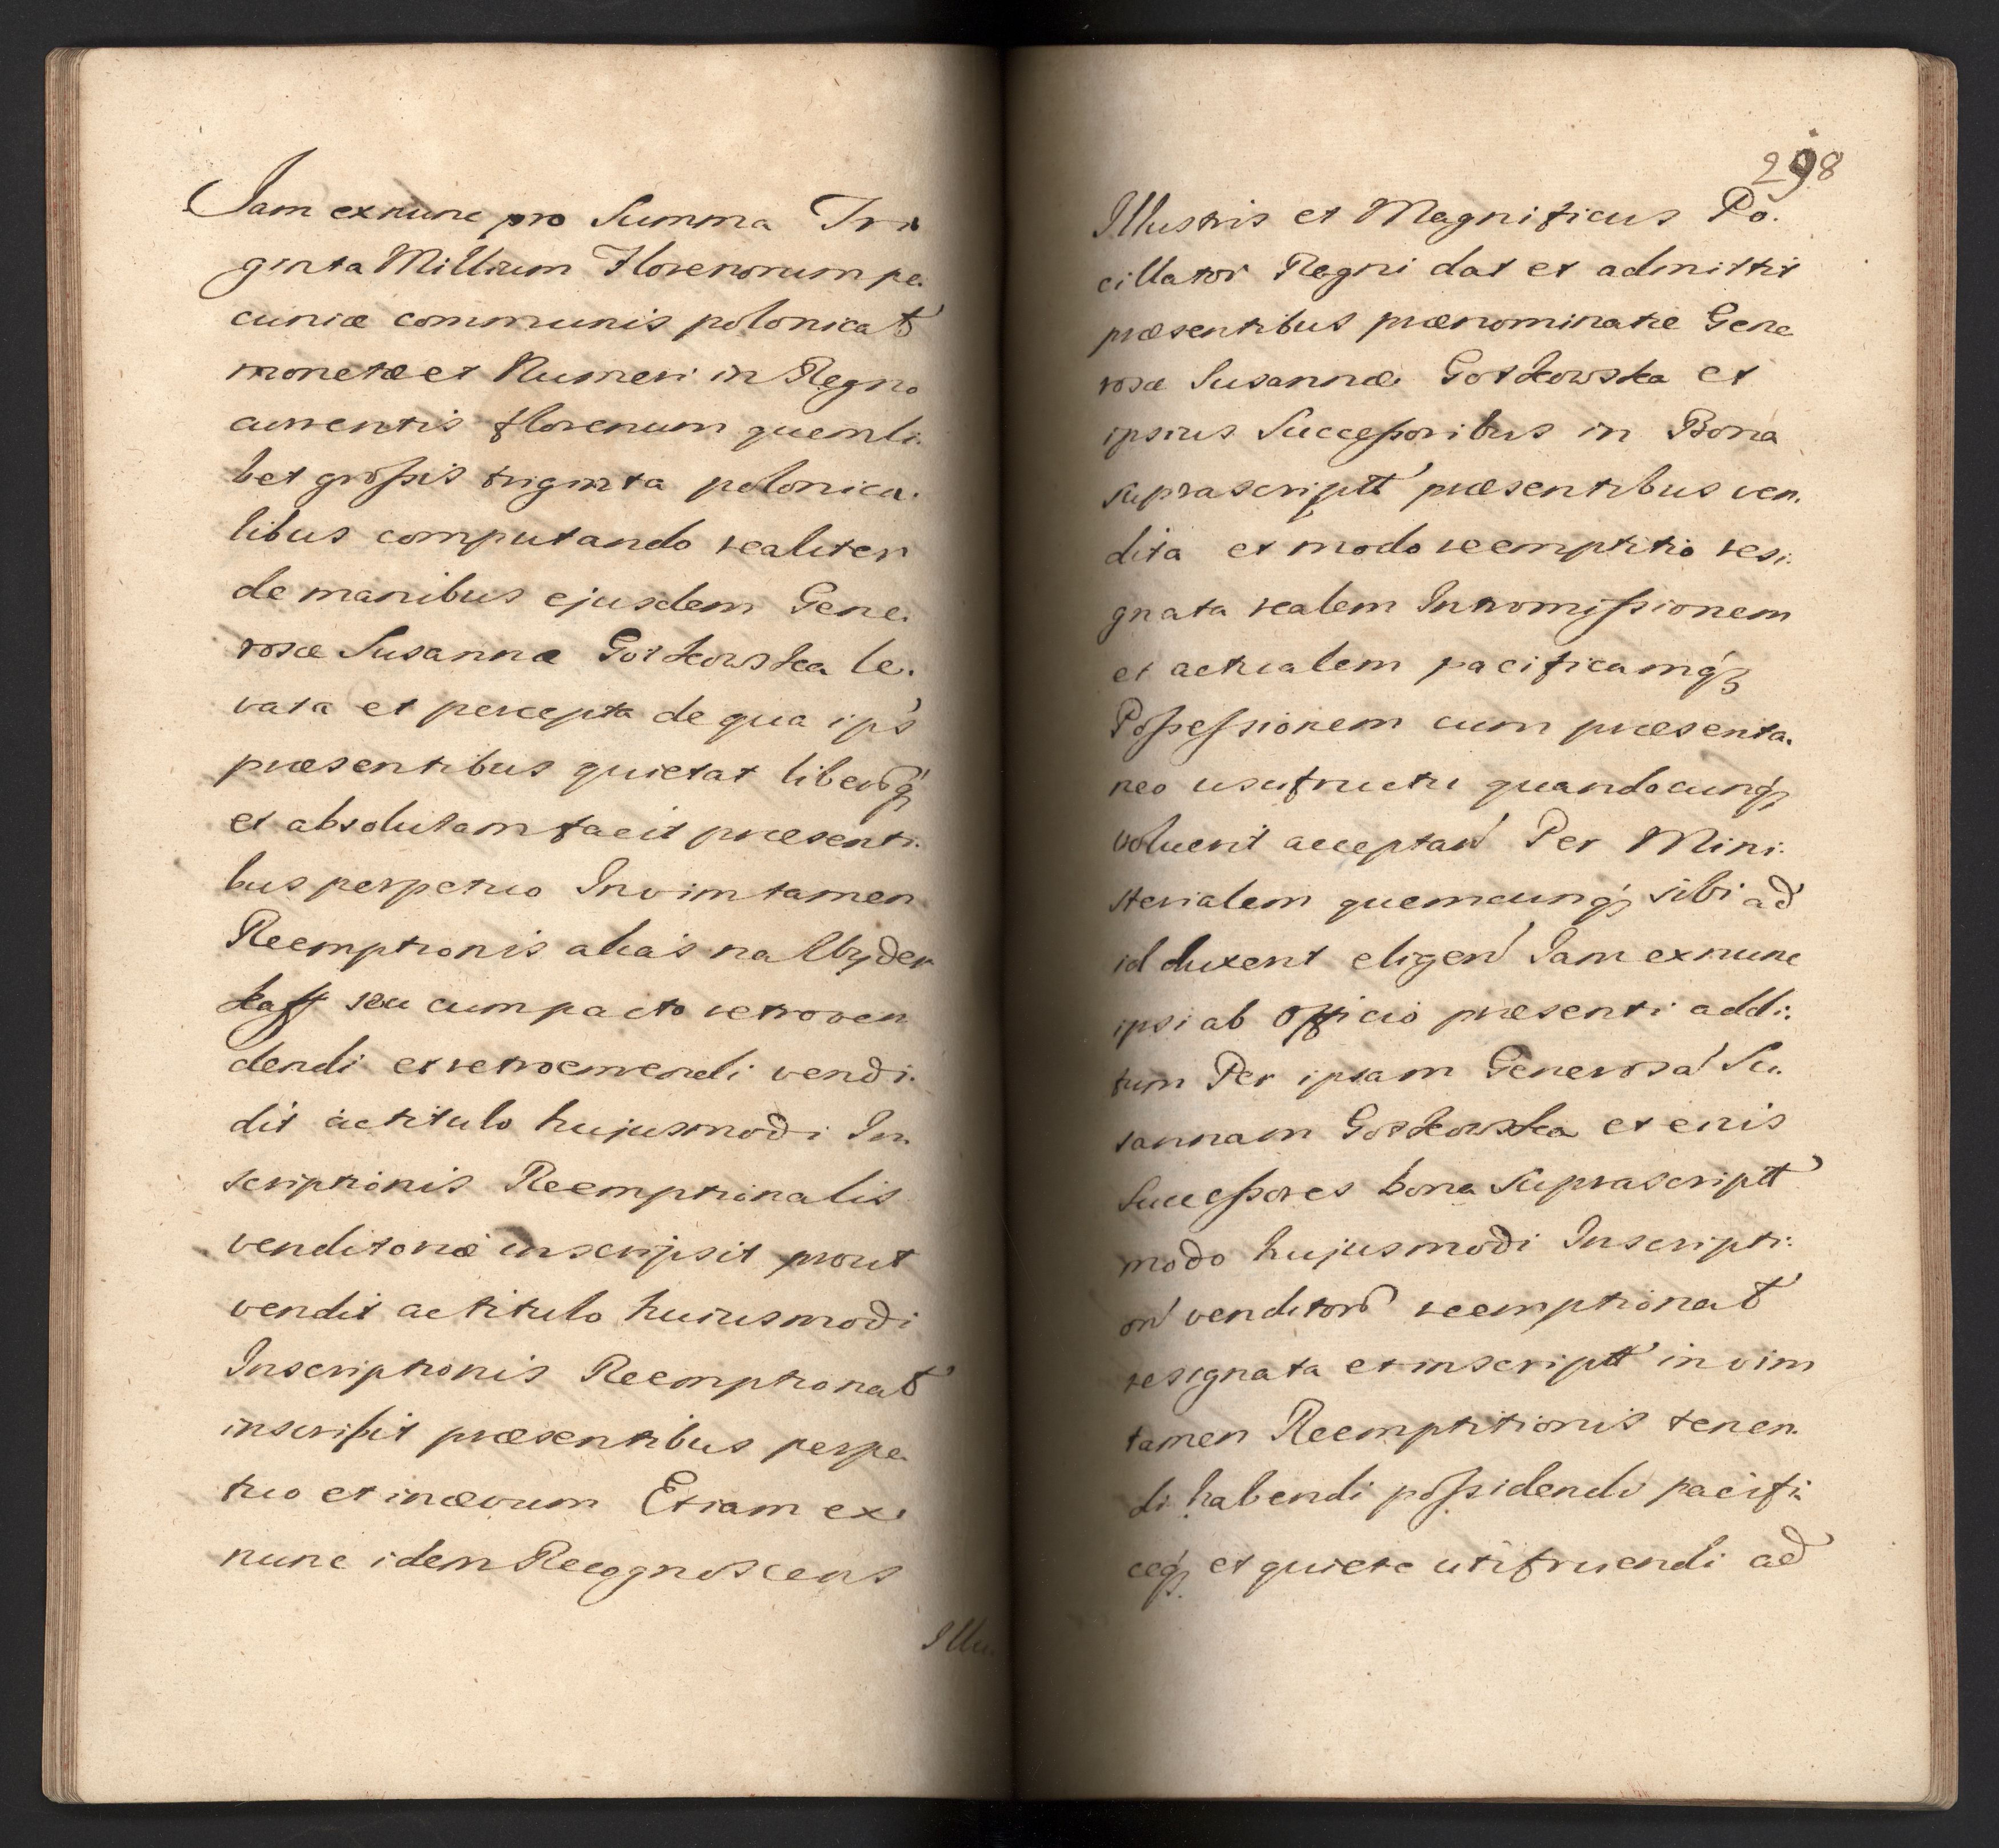 Jam exnunc pro Summa Tri
ginta Millium Florenorum pe.
cuniæ communis polonical
monetæ et Numeri in Regno
currentis florenum quemli.
bet grossis triginta polonica.
libus computando realiter
de manibus ejusdem Gene.
rosæ Susannæ Gorzkowska le.
vata et percepta de qua ips
præsentibus quietat liberoq
et absolutam facit præsenti.
bus perpetuo Invim tamen
Reemptionis alias na Wyder
kaff seu cum pacto retroven
dendi et retroemendi vendi.
dit ac titulo hujusmodi In.
scriptionis Reemptionalis
venditoriæ inscripsit prout
vendit ac titulo huiusmodi
Inscriptionis Reemptional
inscribit præsentibus perpe.
tuo et inævum Etiam ex.
nunc idem Recognoscens
Illu.
298
Illustris et Magnificus Po.
cillator Regni dat et admittit
præsentibus prænominatæ Gene
rosæ Susannæ Gorzkowska et
ipsius Successoribus in Bona
suprascriptt præsentibus ven.
dita et modo reemptitio resi.
gnata realem Intromissionem
et actualem pacificamq
Possessionem cum præsenta.
neo usufructu quandocunq
voluerit acceptan Per Mini.
sterialem quemcunq sibi ad
id duxerit eligen Jam exnunc
ipsi ab Officio præsenti addi.
tum Per ipsam Generosa Su.
sannam Gorzkowska et enis
Successores bona suprascriptt
modo hujusmodi Inscripti.
on venditor reemptional
resignata et inscriptt in vim
tamen Reemptitionis tenen.
di habendi possidendi pacifi.
ceq et quiete utifruendi ad